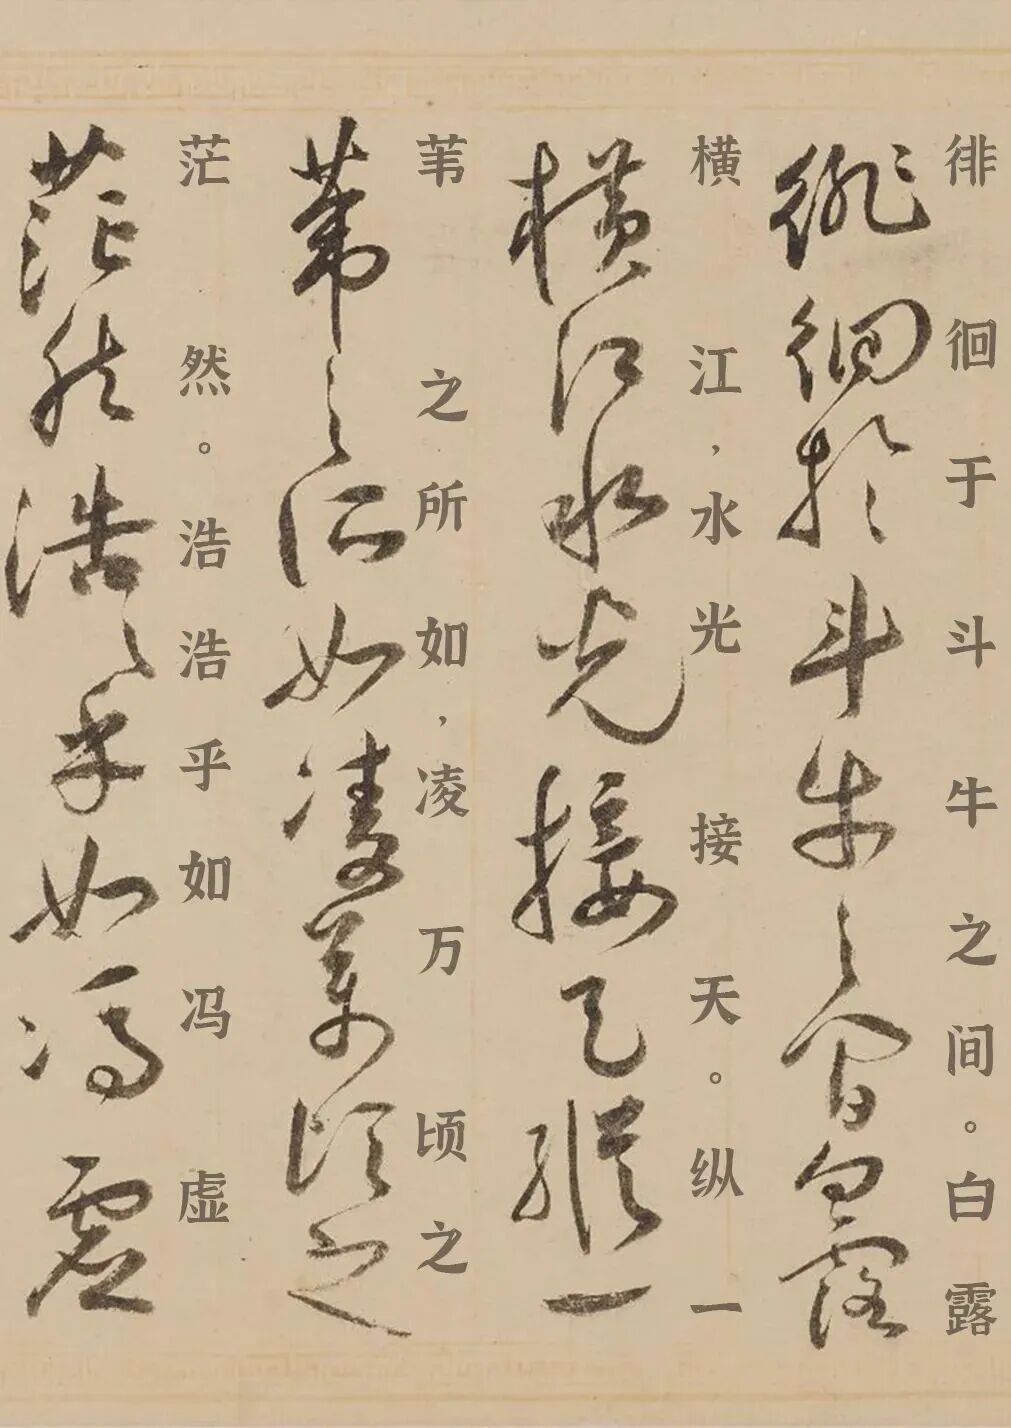 徘徊于斗牛之间。白露
徘徊於斗牛之間白露
横江，水光接天。纵一
橫江水光接天縱一
苇之所如，凌万顷之
葦之所如凌萬頃之
茫然。浩浩乎如冯虚
茫然浩〻乎如馮虛